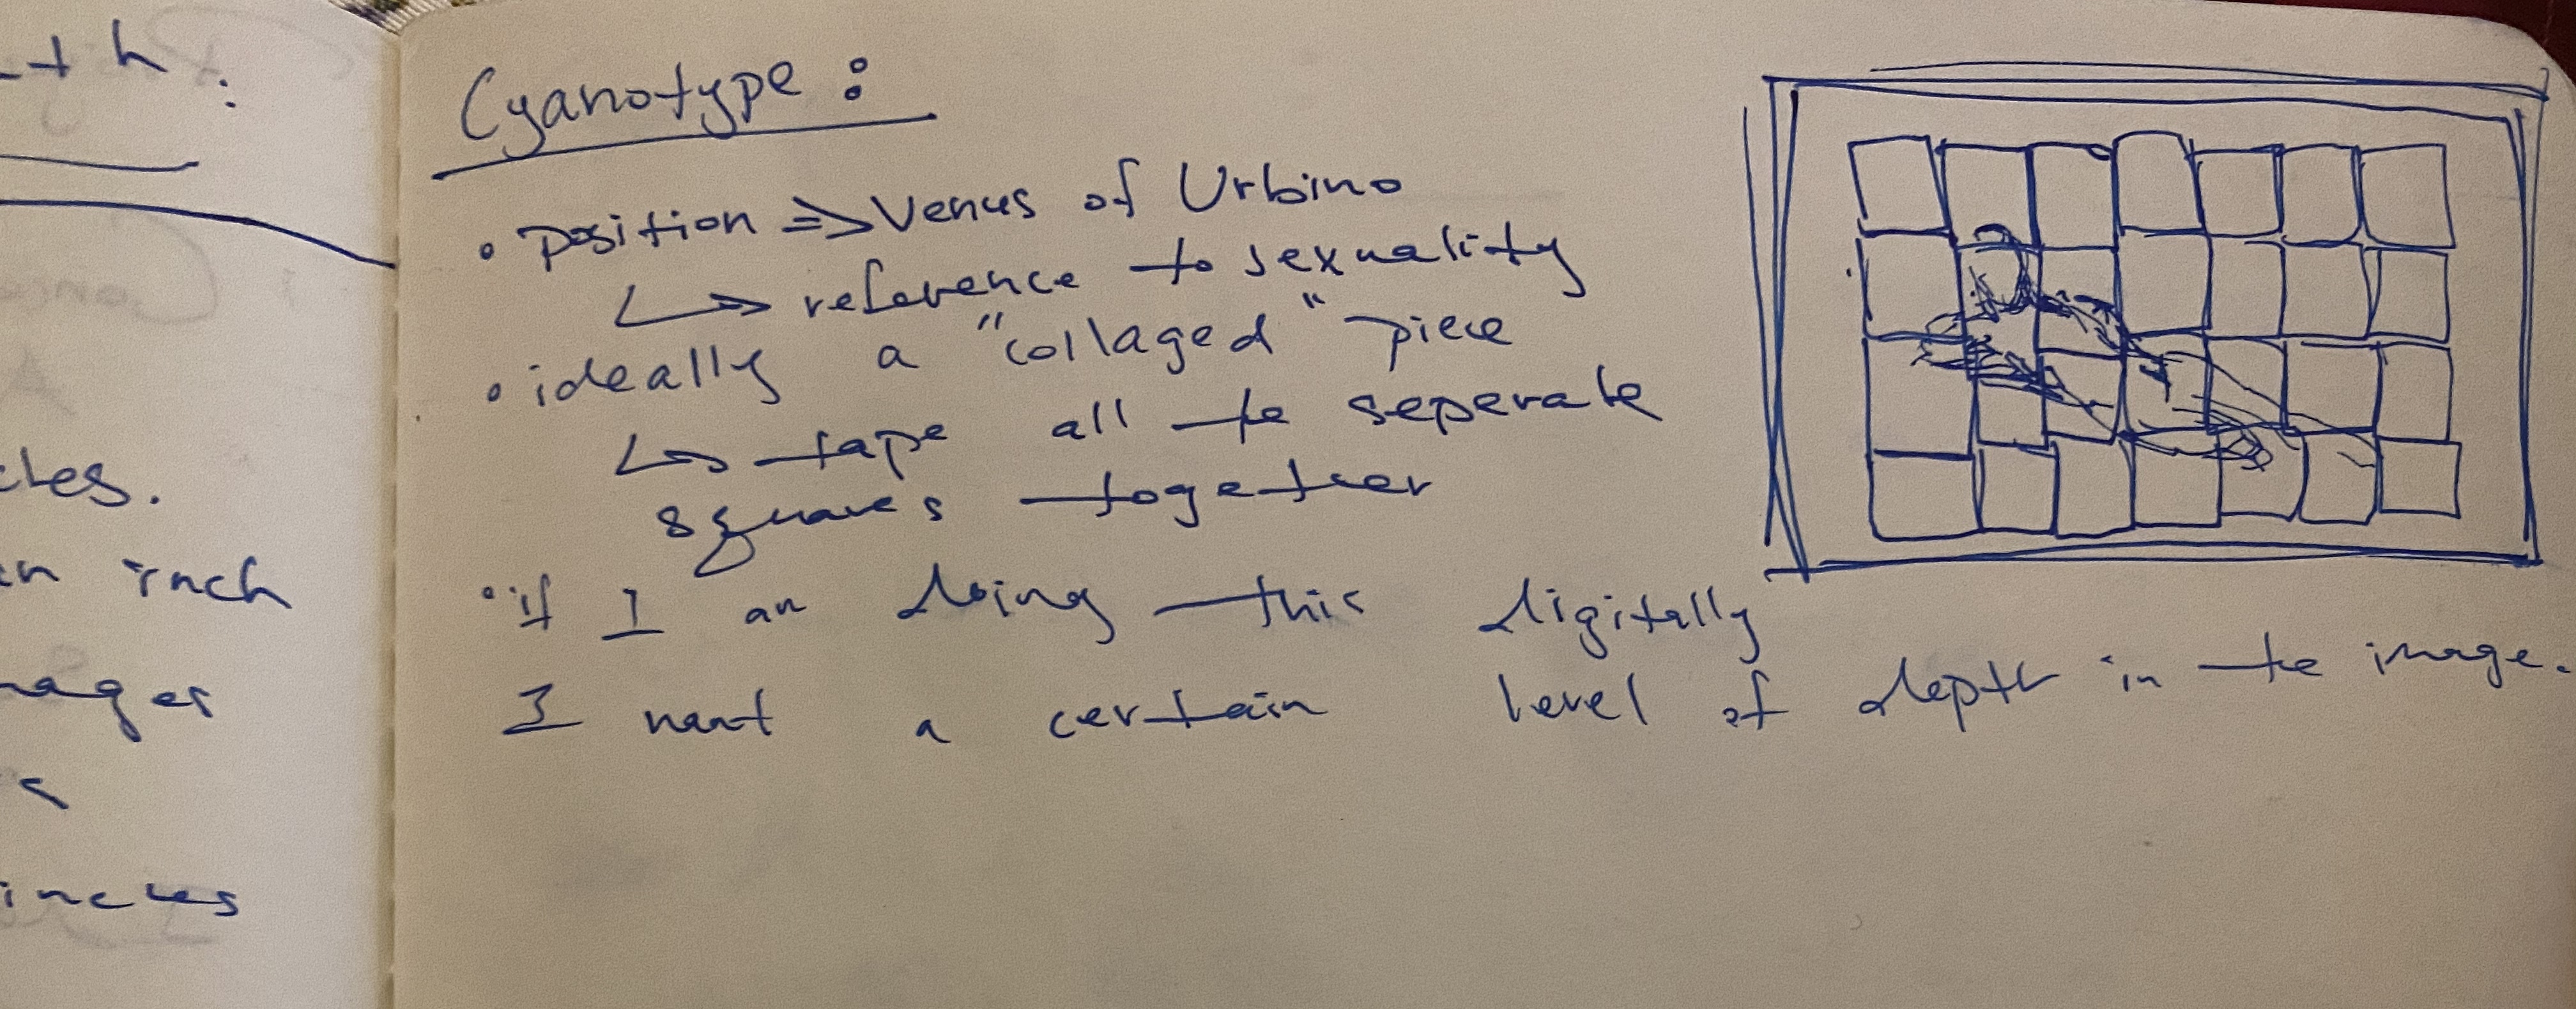 th:
cles.
an inch
mages
inches
Cyanotype:
• position => Venus of Urbino
↳ reference to sexuality
• ideally a "collaged" piece
↳ tape all te seperate
squares together
• if I am doing this digitally
I want a certain level of depth in te image.